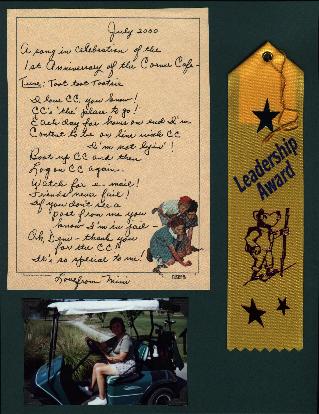 July 2000
A song in celebration of the
1st Anniversary of the Corner Cafe-
Tune: Toot toot Tootsie
I love CC, you know!
CC's 'the' place to go!
Each day for hours on end I'm
Content to be on line with CC
I'm not lyin'!
Boot up CC and then
Log on CC again.
Watch for e-mail!
Friends never fail!
If you don't see a
post from me you
know I'm in jail-
Oh, Dene - thank you
for the CC!
It's so special to me!
Love from Mimi
Leadership
Award